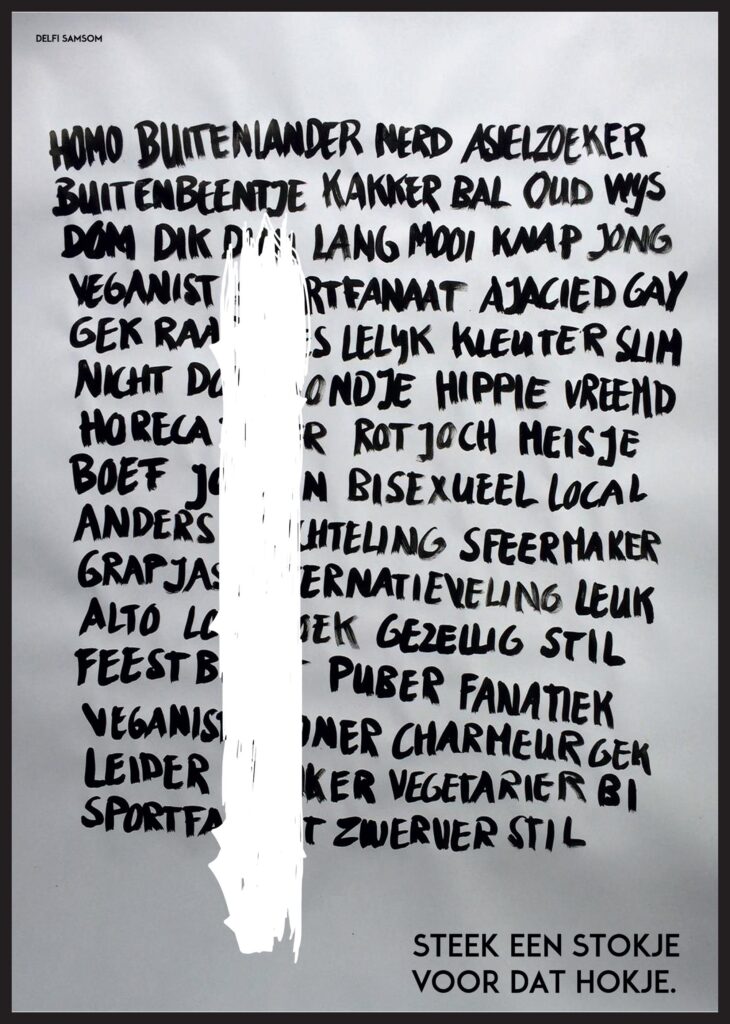 DELFI SAMSOM
HOMO BUITENLANDER NERD ASIELZOEKER
BUITENBEENTJE KAKKER BAL OUD WYS
DOM DIK LANG MOOI KNAP JONG
VEGANIST RTFANAAT AJACIED GAY
GEK RAA ES LELYK KLEUTER SLIM
NICHT DO ONDJE HIPPIE VREEMD
HORECA R ROTJOCH MEISJE
BOEF JO N BISEXUEEL LOCAL
ANDERS CHTELING SFEERMAKER
GRAPJAS TERNATIEVELING LEUK
ALTO LO OEK GEZELLIG STIL
FEESTB PUBER FANATIEK
VEGANIST ONER CHARMEUR GEK
LEIDER KER VEGETARIER BI
SPORTFA T ZWERVER STIL
STEEK EEN STOKJE
VOOR DAT HOKJE.